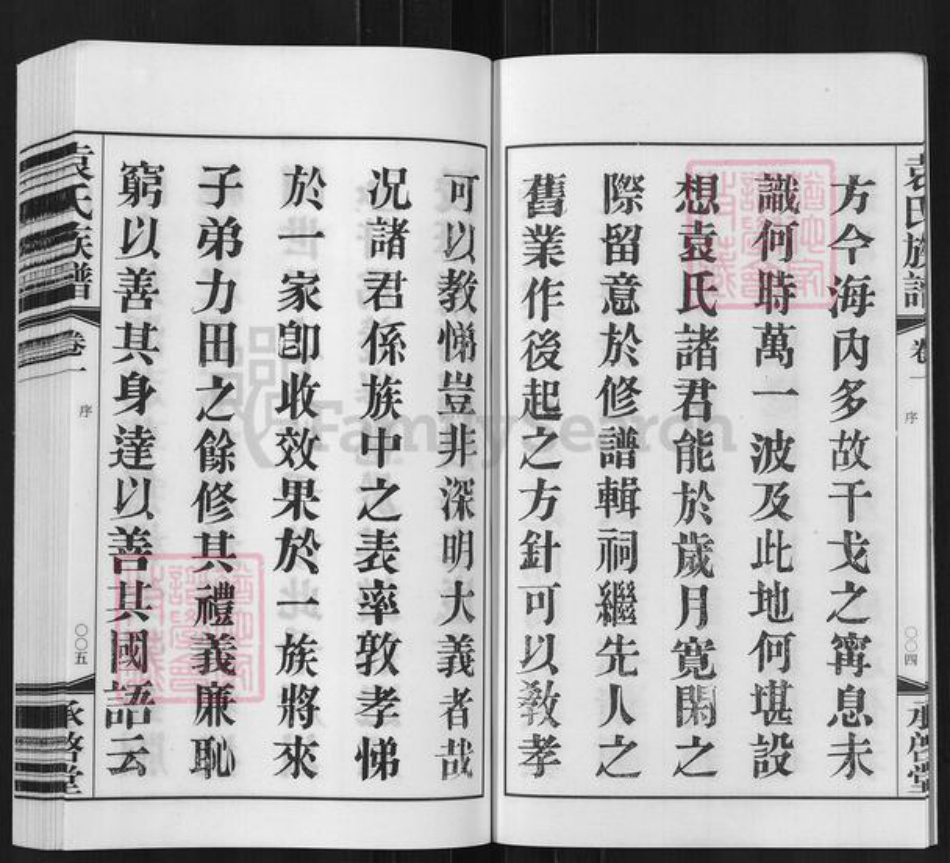 袁氏族譜
卷一
序
〇〇四
承啓堂
方今海內多故干戈之甯息未
識何時萬一波及此地何堪設
想袁氏諸君能於歲月寬閑之
際留意於修譜輯祠繼先人之
舊業作後起之方針可以教孝
可以教悌豈非深明大義者哉
况諸君係族中之表率敦孝悌
於一家卽收效果於一族將來
子弟力田之餘修其禮義廉恥
窮以善其身達以善其國語云
袁氏族譜
卷一
序
〇〇五
承啓堂
FamilySearch